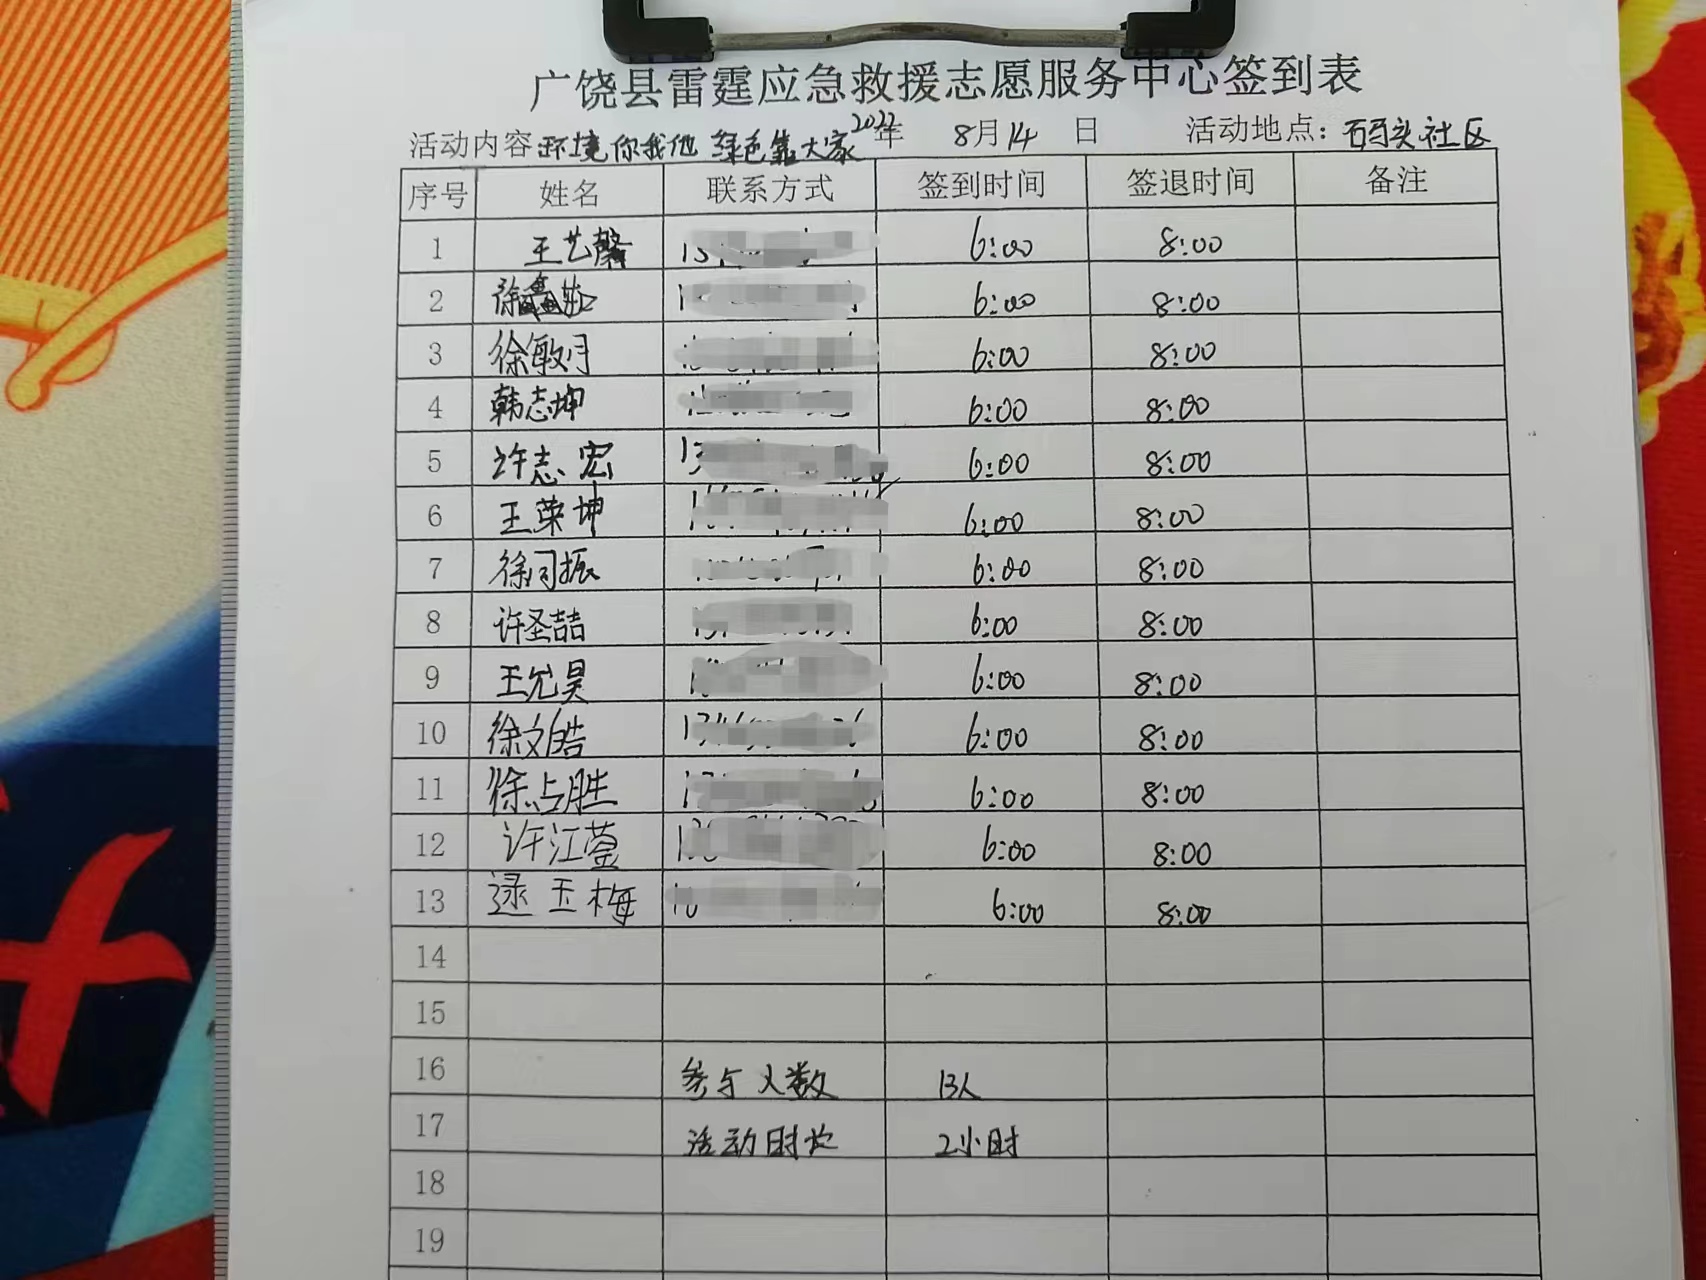 广饶县雷霆应急救援志愿服务中心签到表
活动内容 环境你我他 绿色靠大家 2022年 8月14日 活动地点：码头社区
序号 姓名 联系方式 签到时间 签退时间 备注
1 王艺馨 6:00 8:00
2 徐 6:00 8:00
3 徐敏月 6:00 8:00
4 韩志坤 6:00 8:00
5 许志宏 6:00 8:00
6 王荣坤 6:00 8:00
7 徐同振 6:00 8:00
8 许圣喆 6:00 8:00
9 王允昊 6:00 8:00
10 徐文皓 6:00 8:00
11 徐占胜 6:00 8:00
12 许江蓥 6:00 8:00
13 逯玉梅 6:00 8:00
14
15
16 参与人数 13人
17 活动时长 2小时
18
19